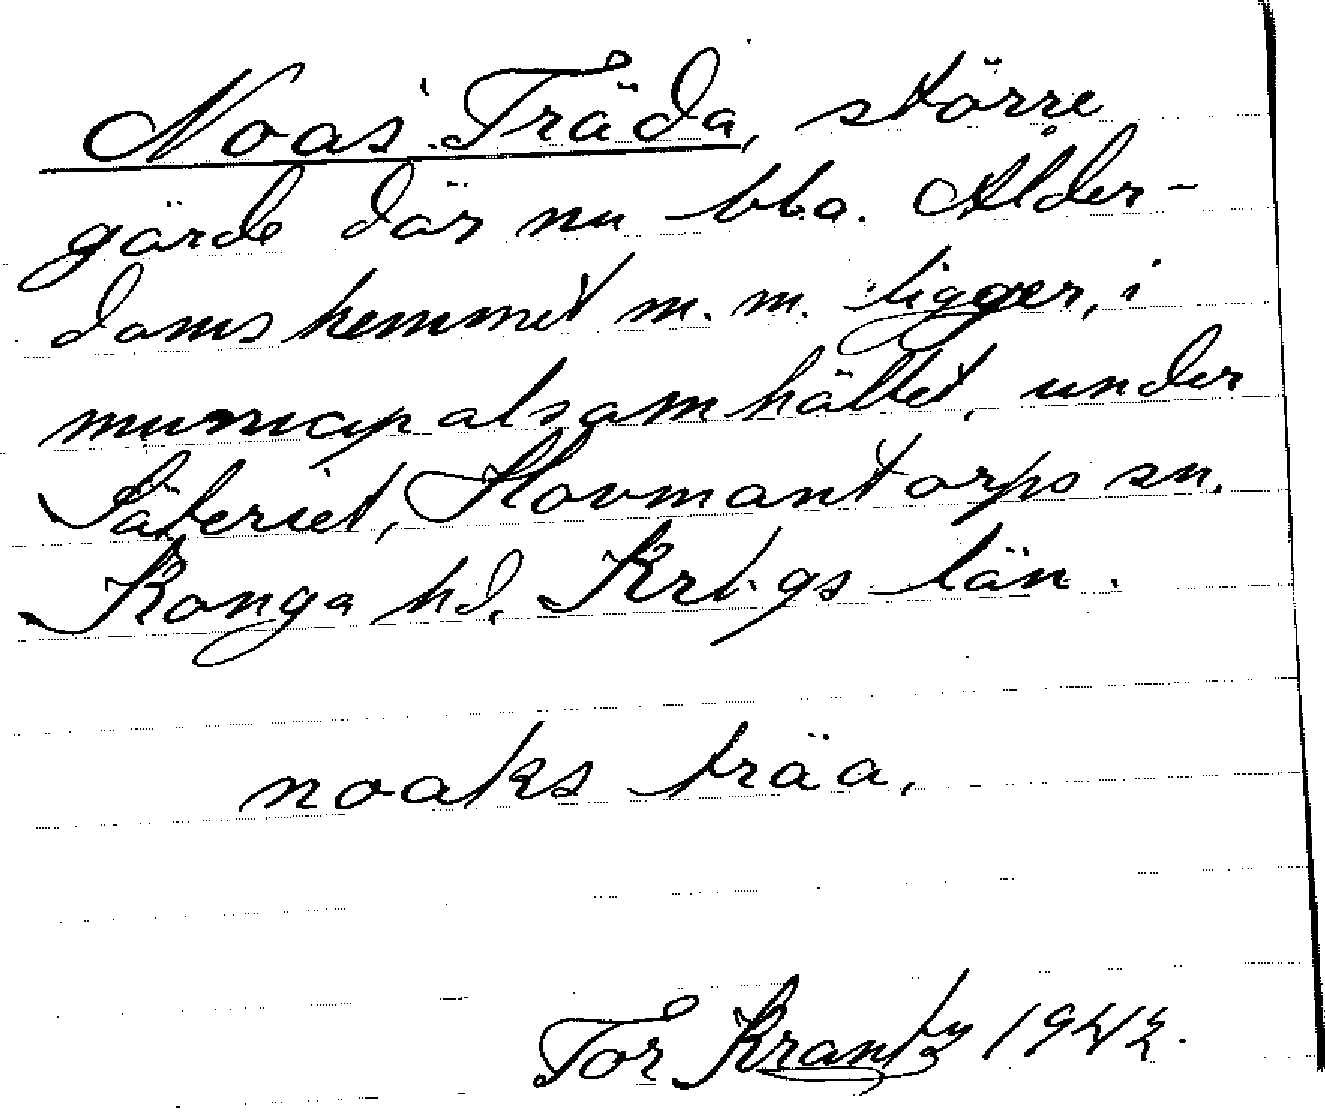 Noas' Träda, större
gärde där nu bl.a. Ålder-
domshemmet m.m. ligger, i
municipalsamhället, under
Säteriet, Hovmantorps sn.
Konga hd. Krbgs län.
noaks träa,
Tor Krantz 1944.